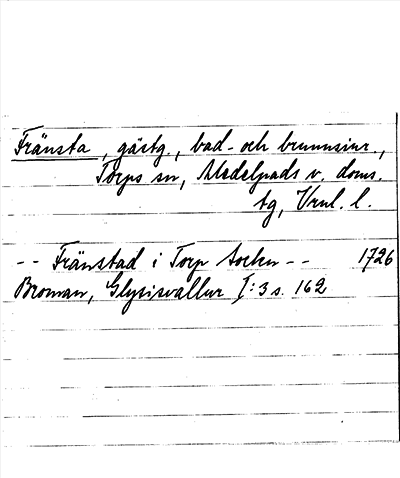 Fränsta, gästg., bad- och brunnsinr.,
Torps sn, Medelpads v. doms.
tg, Vrnl. l.
-- Fränstad i Torp Socken -- 1726
Broman, Glysisvallur I:3 s. 162